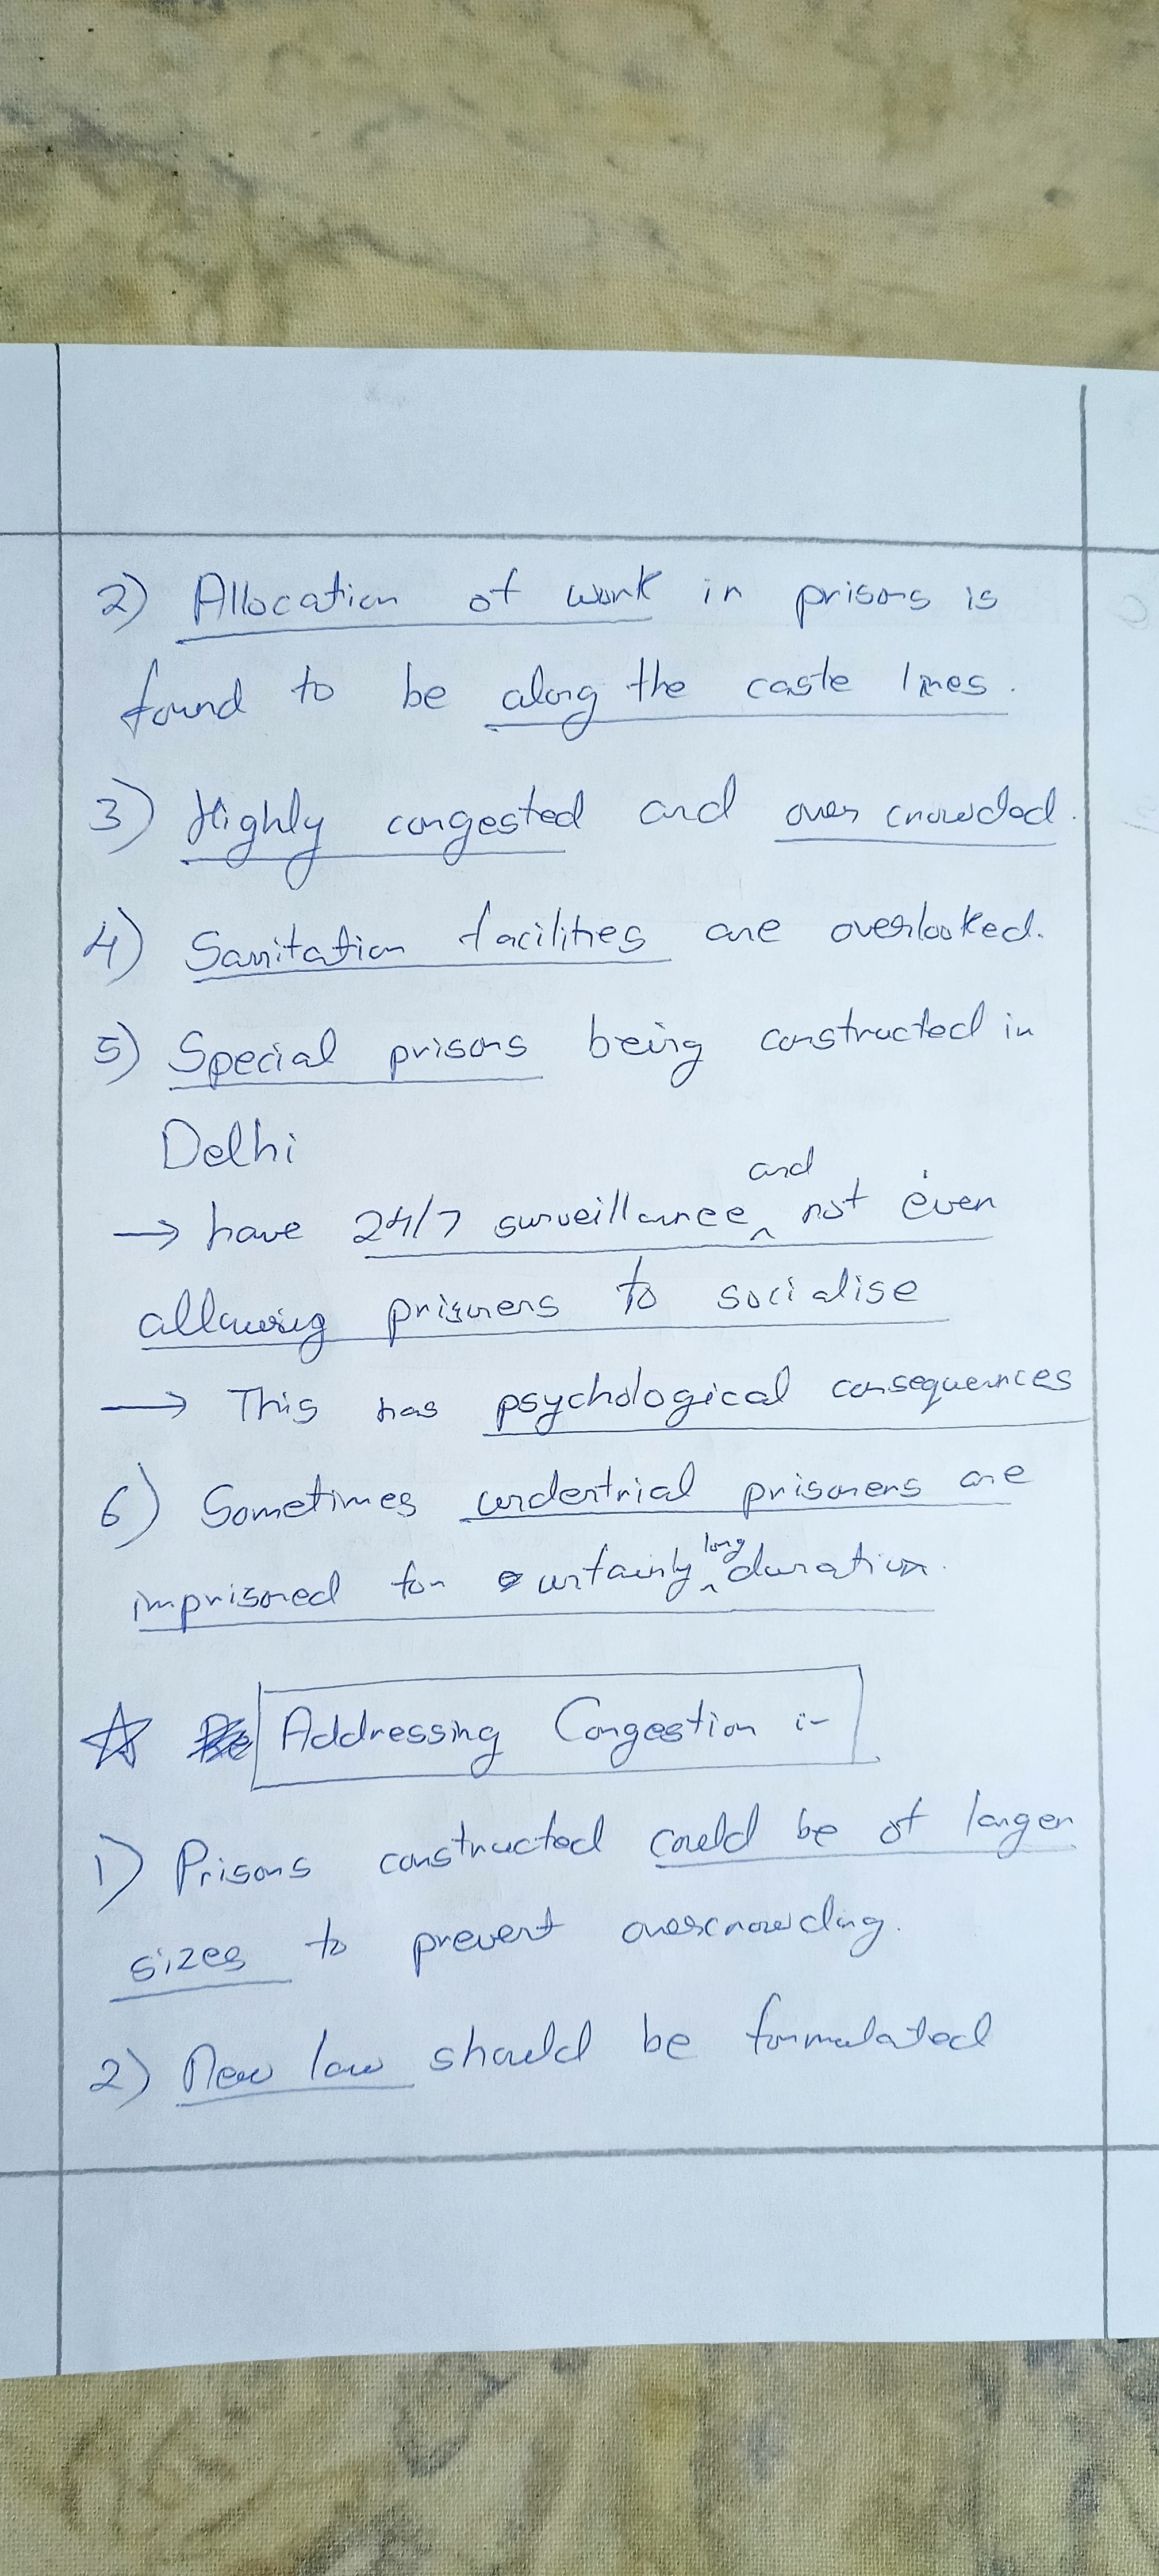 2) Allocation of work in prisons is
found to be along the caste lines.
3) Highly congested and over crowded.
4) Sanitation facilities are overlooked.
5) Special prisons being constructed in
Delhi
→ have 24/7 surveillance and not even
allowing prisoners to socialise
→ This has psychological consequences
6) Sometimes undertrial prisoners are
imprisoned for certainly long duration.
☆ Addressing Congestion :-
1) Prisons constructed could be of larger
sizes to prevent overcrowding.
2) New law should be formulated